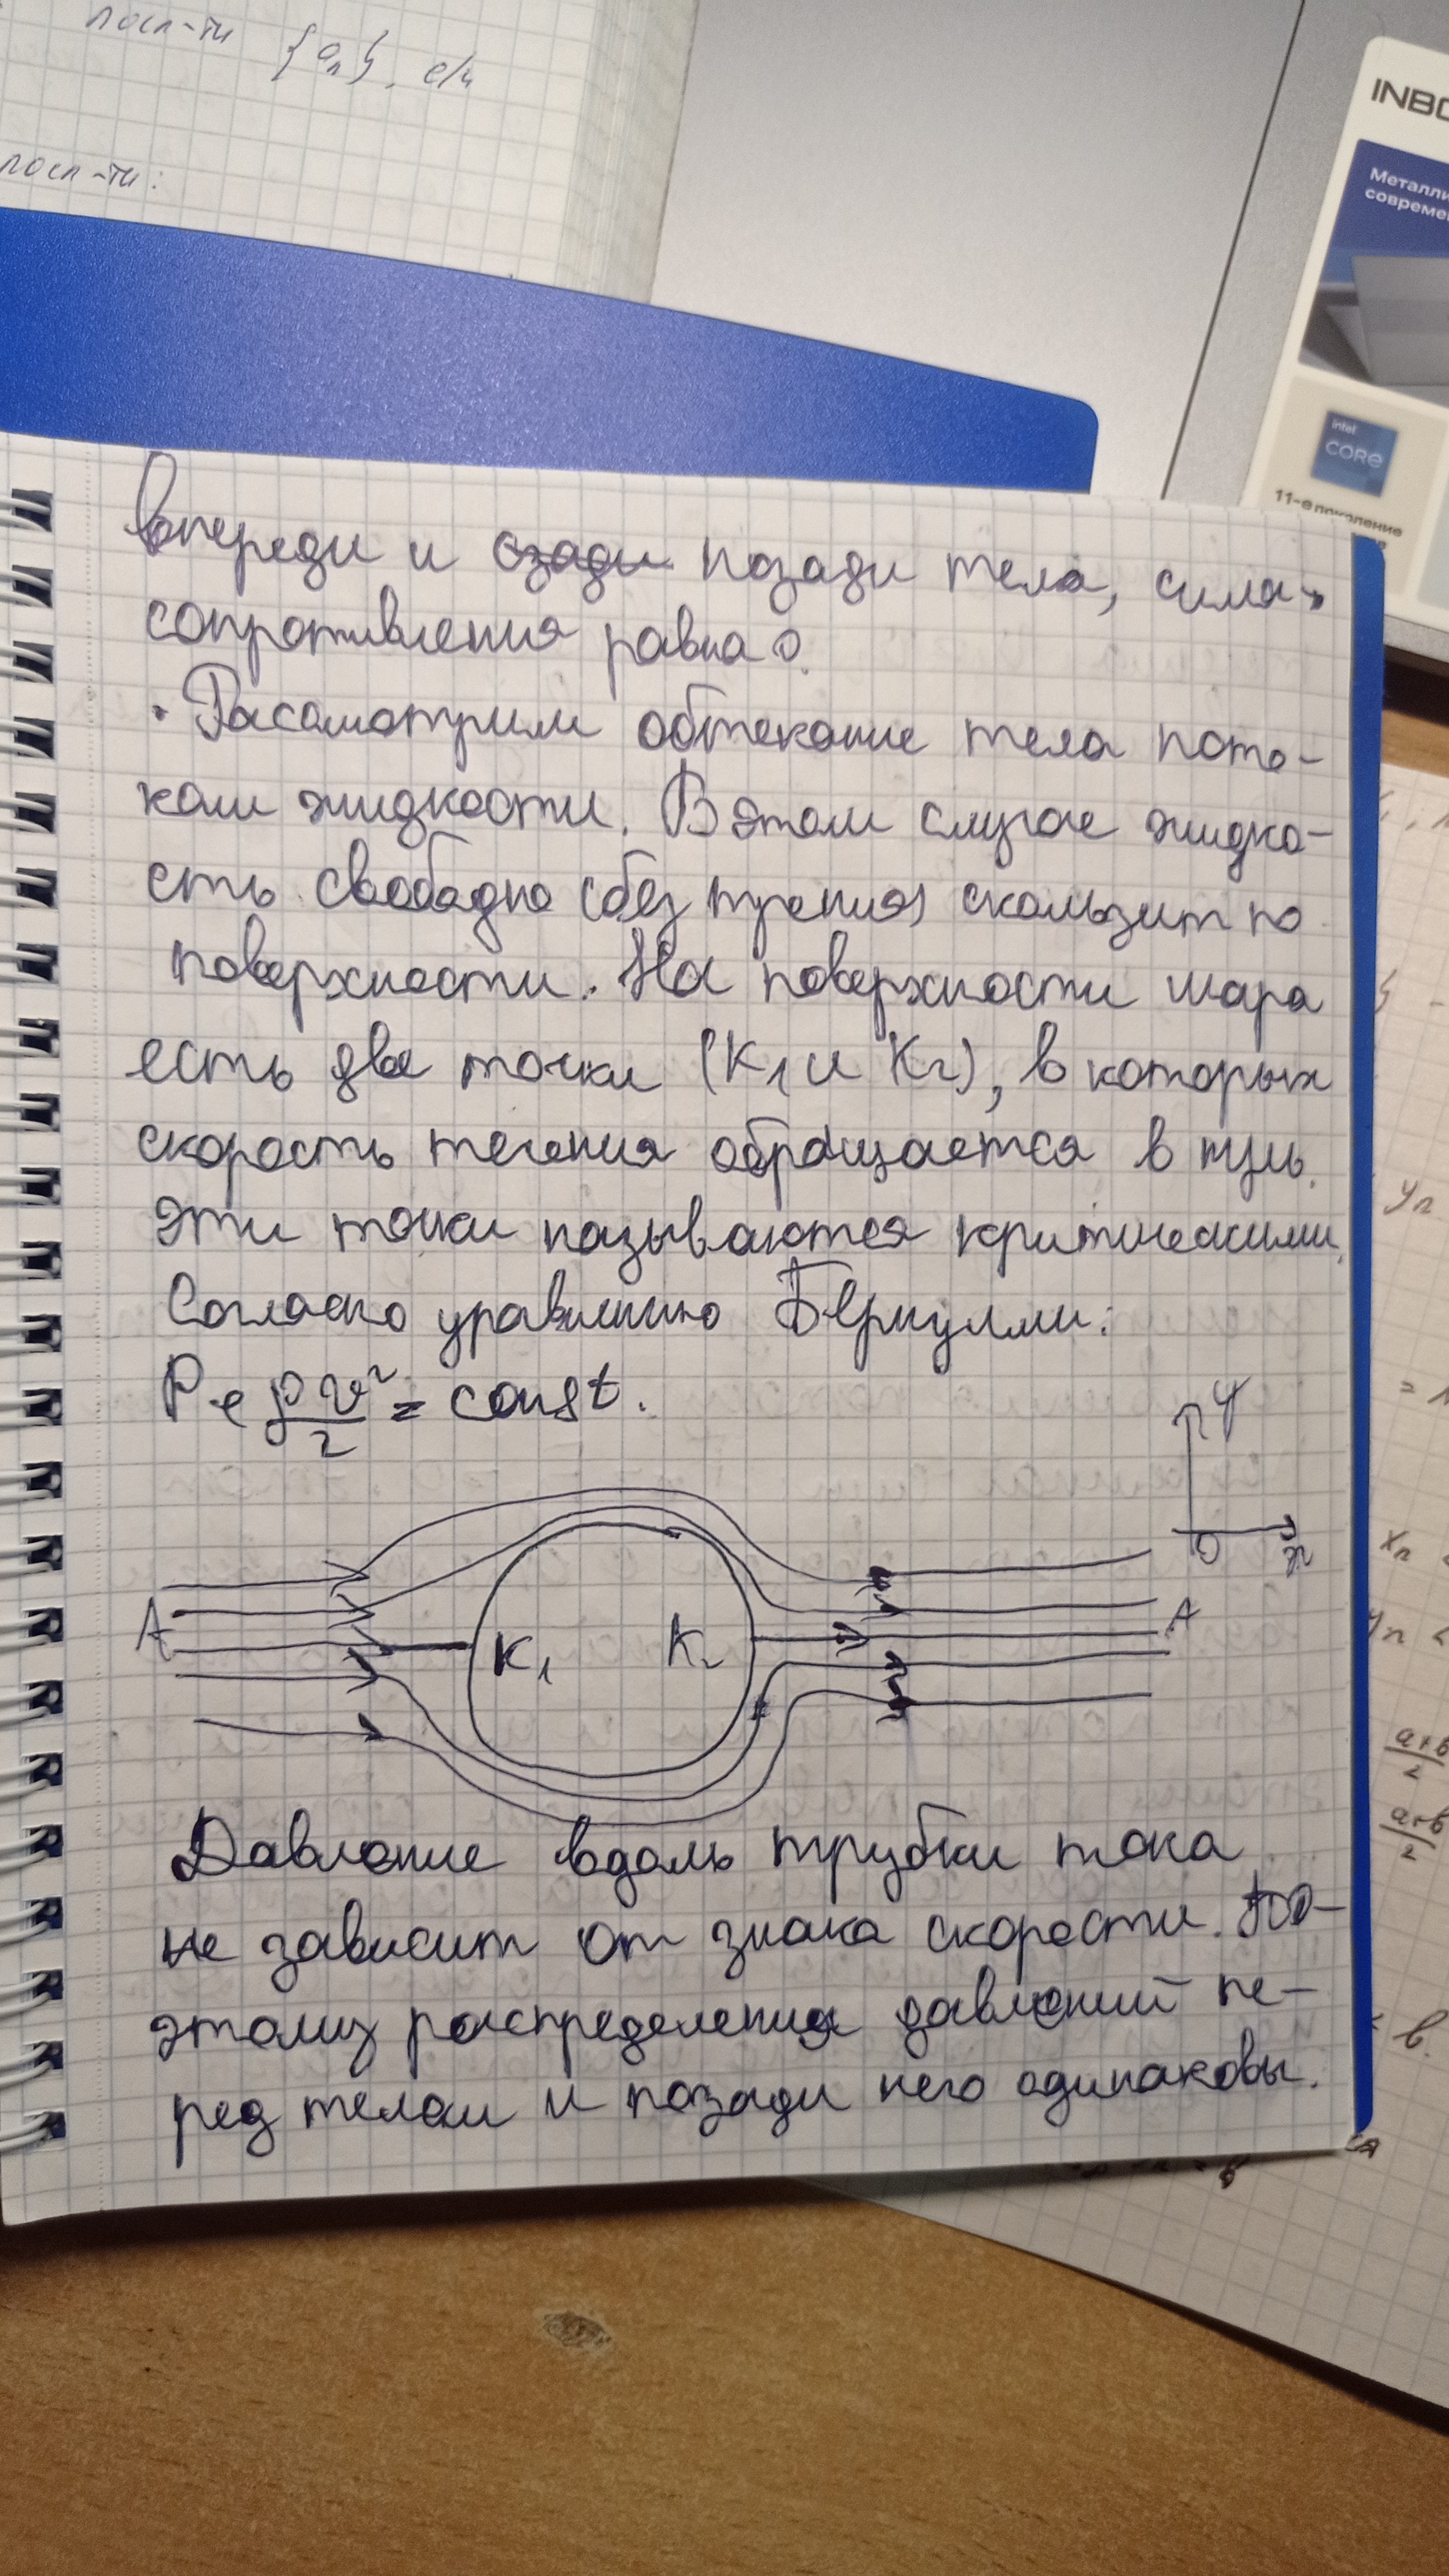 посл-ти {aₙ}, е/и
посл-ти:
INBO
Металли
совреме
intel
CORE
11-е поколение
впереди и сзади позади тела, сила
сопротивления равна 0.
• Рассмотрим обтекание тела пото-
ком жидкости. В этом случае жидко-
сть свободно (без трения) скользит по
поверхности. На поверхности шара
есть две точки (К₁ и К₂), в которых
скорость течения обращается в нуль.
Эти точки называются критическими.
Согласно уравнению Бернулли:
P + ρv²/2 = const.
y
0
x
A
K₁
K₂
A
Давление вдоль трубки тока
не зависит от знака скорости. По-
этому распределения давлений пе-
ред телом и позади него одинаковы.
yₙ
xₙ <
yₙ <
a+b/2
a+b/2
в.